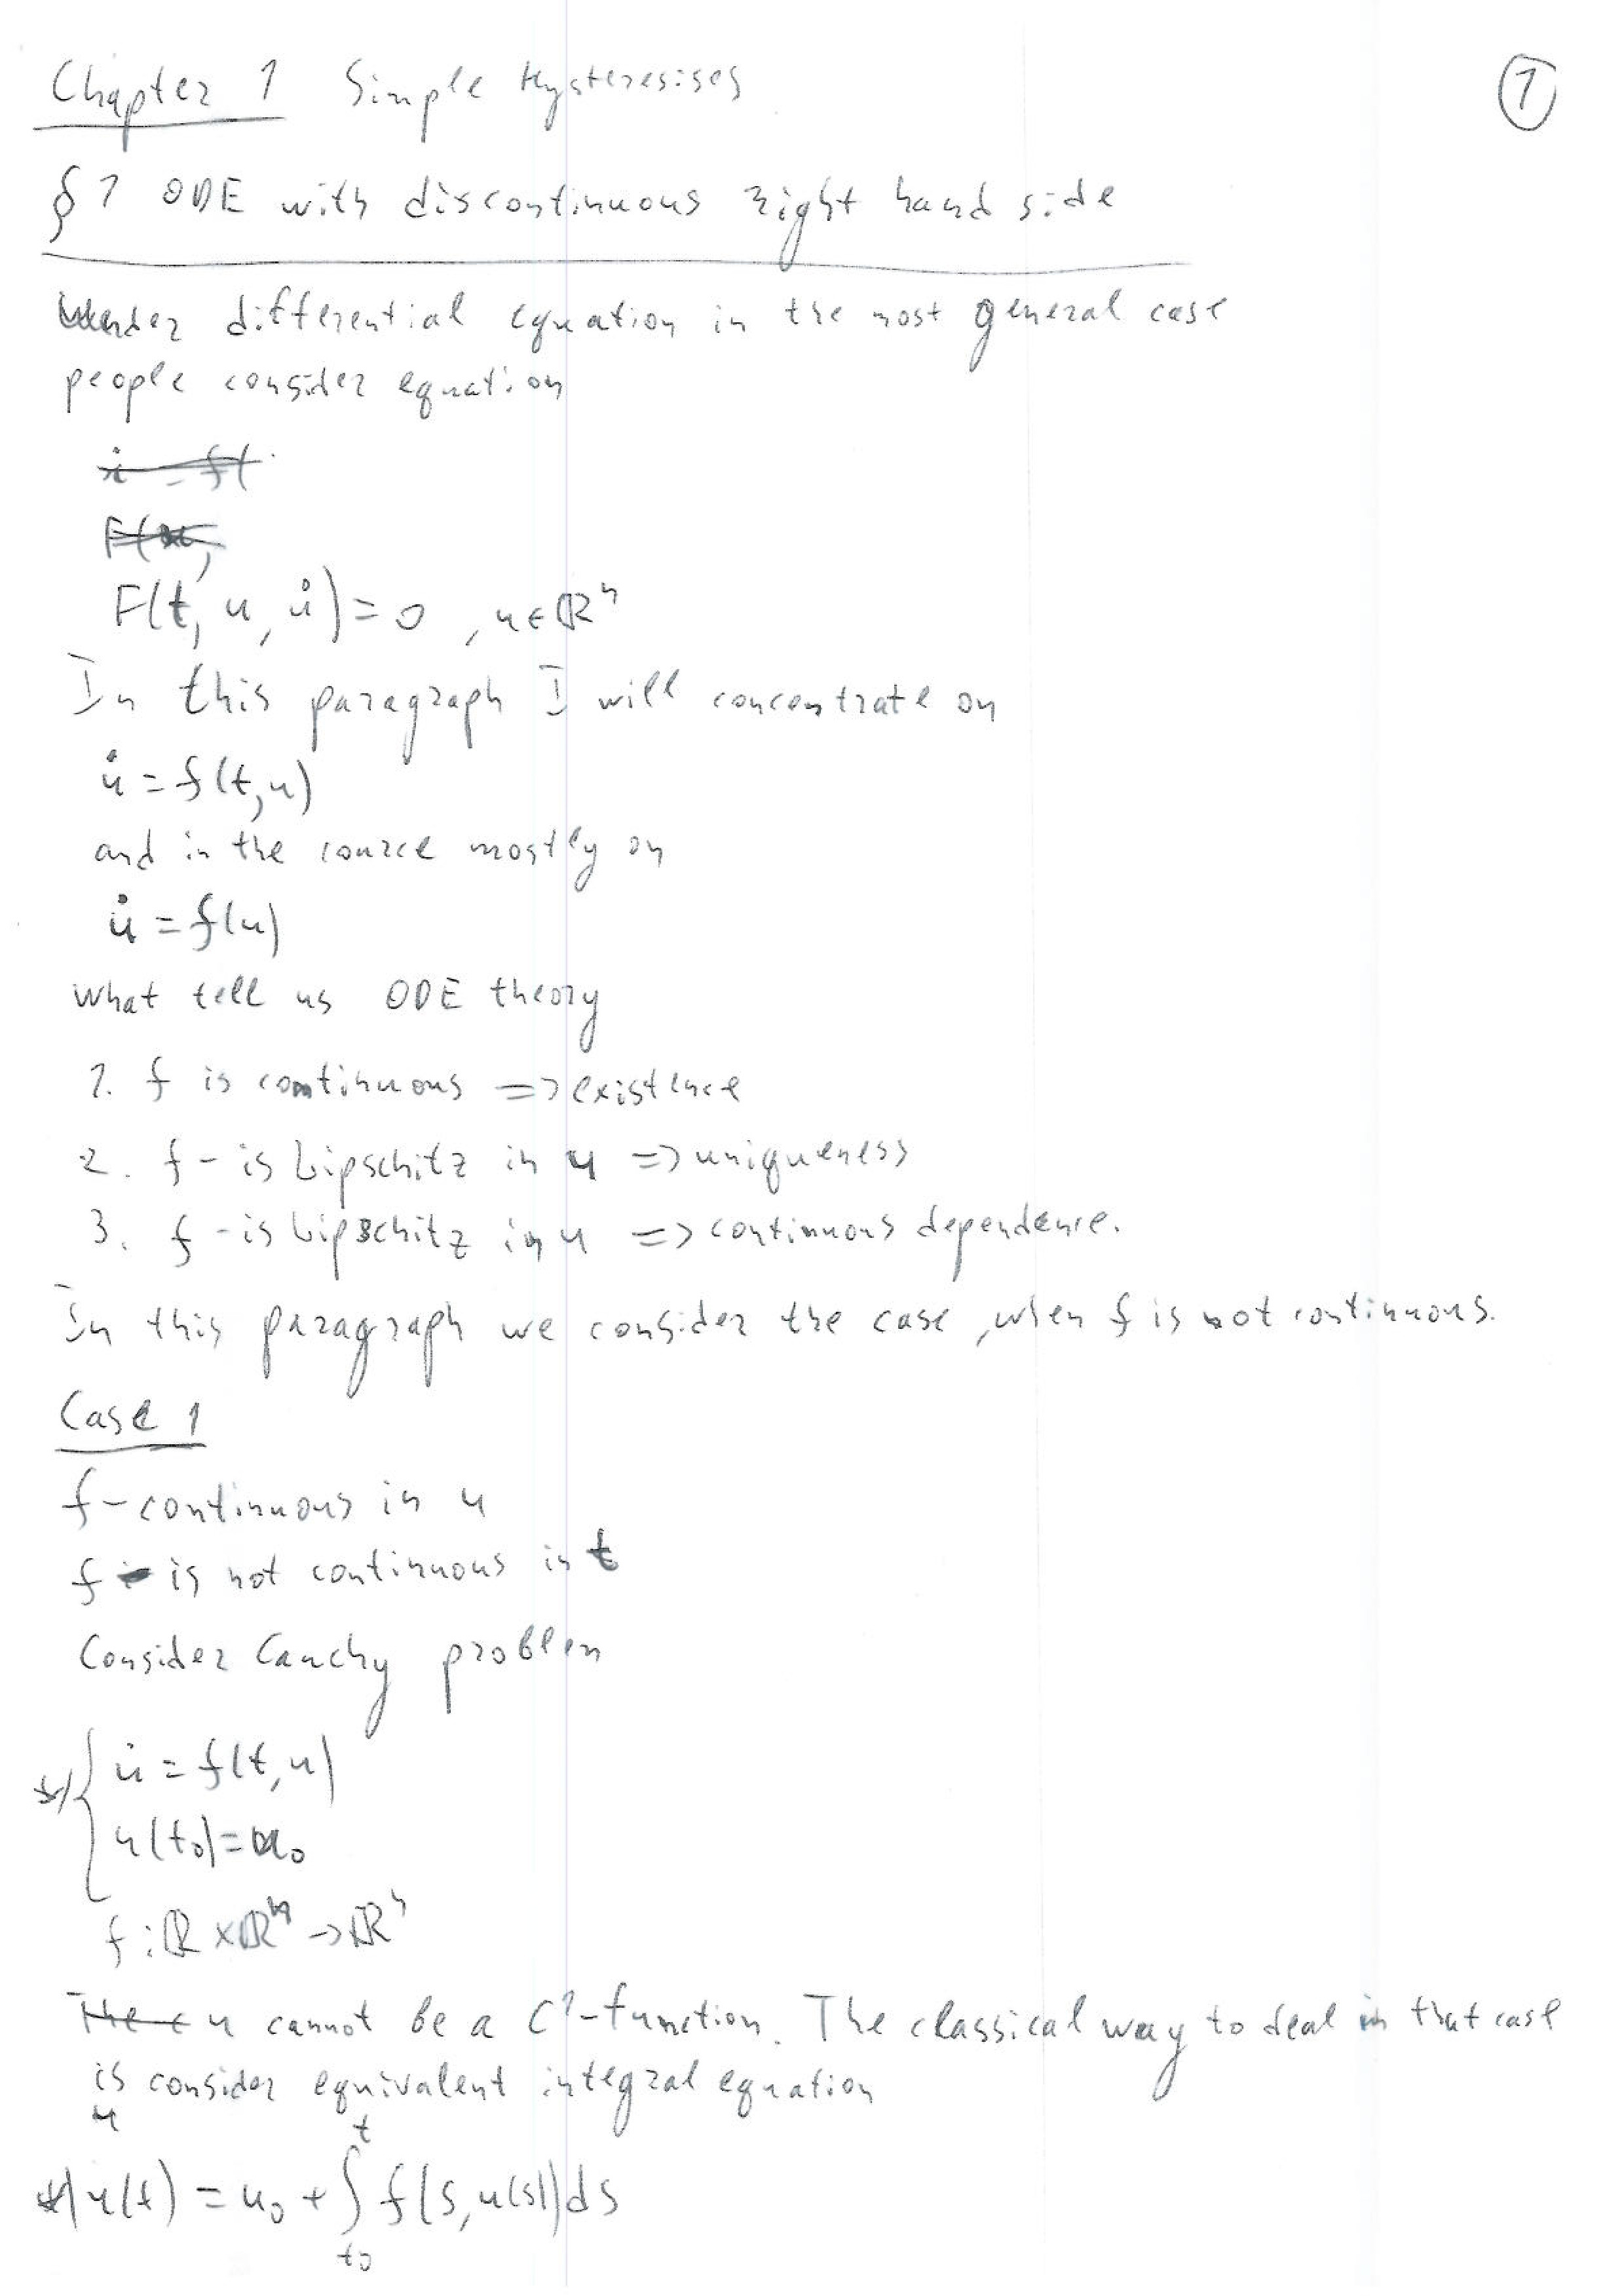 Chapter 1 Simple Hysteresises
1
§1 ODE with discontinuous right hand side
Under differential equation in the most general case
people consider equation
F(t, u, u̇) = 0 , u ∈ ℝⁿ
In this paragraph I will concentrate on
u̇ = f(t,u)
and in the cource mostly on
u̇ = f(u)
What tell us ODE theory
1. f is continuous => existence
2. f - is Lipschitz in u => uniqueness
3. f - is Lipschitz in u => continuous dependence.
In this paragraph we consider the case, when f is not continuous.
Case 1
f - continuous in u
f is not continuous in t
Consider Cauchy problem
*) { u̇ = f(t,u)
u(t₀) = u₀
f : ℝ × ℝⁿ → ℝⁿ
u cannot be a C¹-function. The classical way to deal in that case
is consider equivalent integral equation
*) u(t) = u₀ + ∫_{t₀}^{t} f(s, u(s)) ds